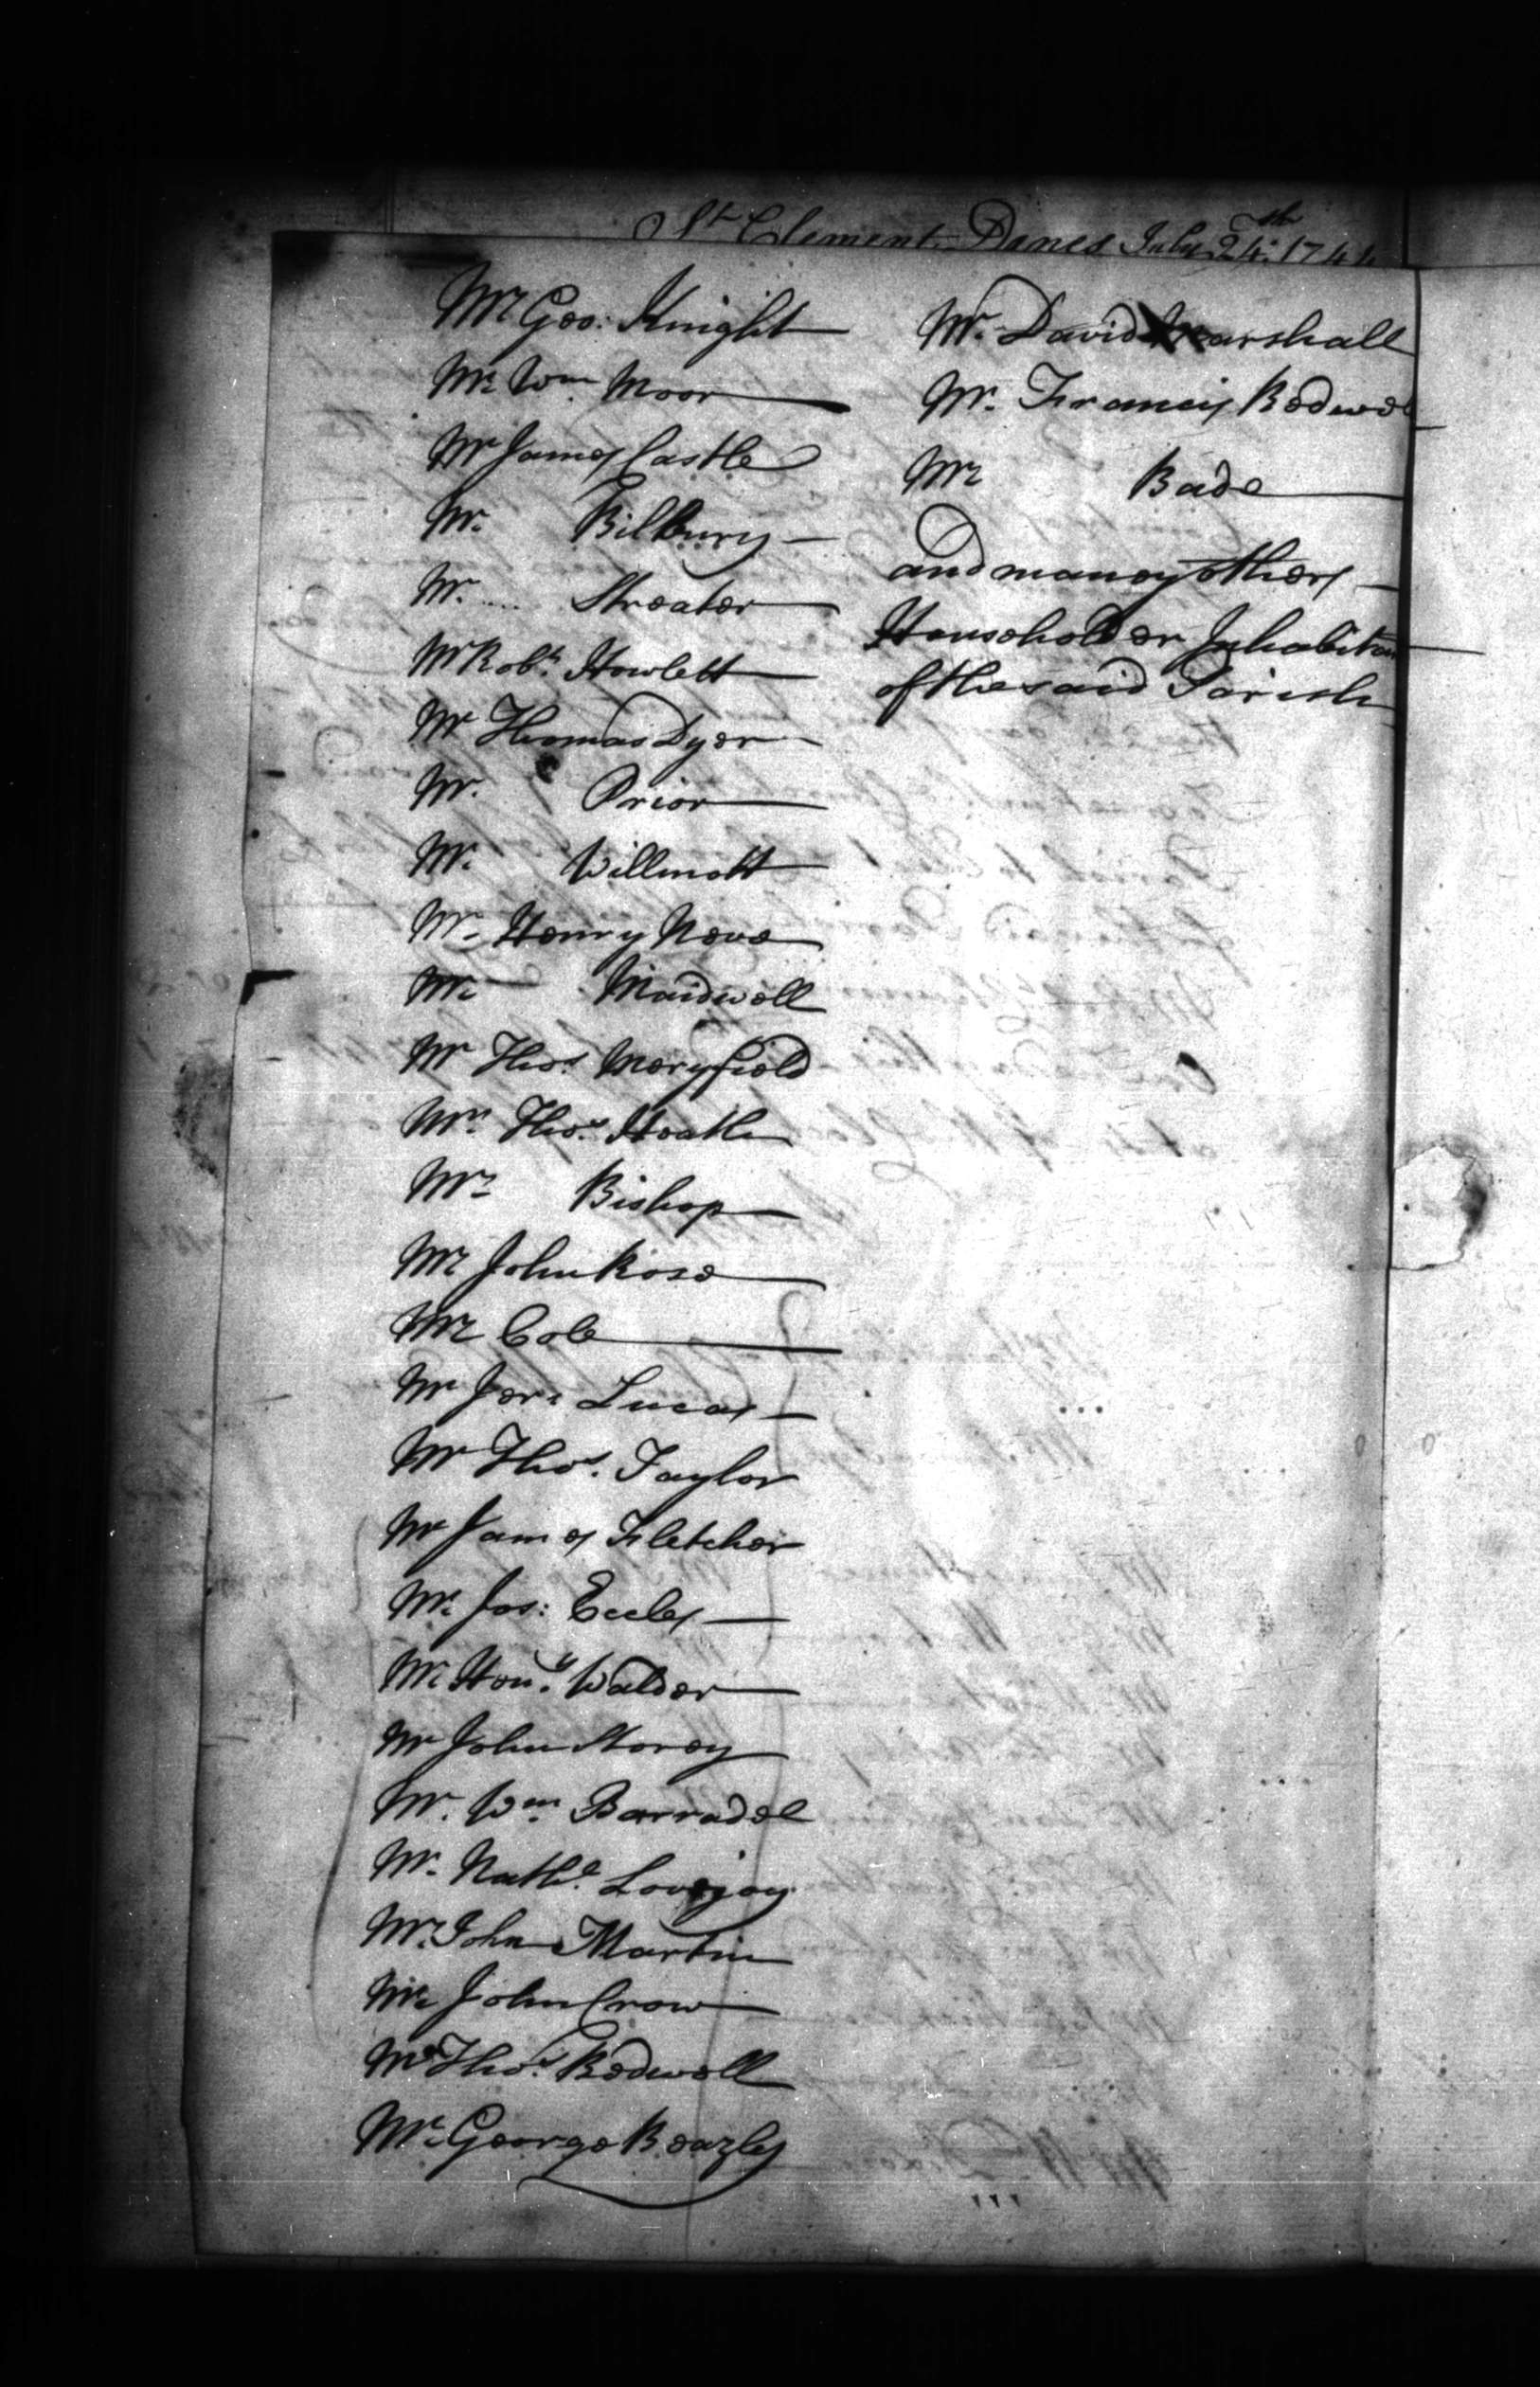 St Clement Danes July 24th: 1744
Mr Geo: Knight
Mr Wm Moor
Mr James Castle
Mr. Bilbury
Mr. Streater
Mr Robt. Howlett
Mr Thomas Dyer
Mr. Prior
Mr. Willmott
Mr. Henry Neve
Mr. Maidwell
Mr Thos. Meryfield
Mr. Thos. Heath
Mr. Bishop
Mr John Rose
Mr Cole
Mr Jer: Lucas
Mr Thos. Taylor
Mr James Fletcher
Mr. Jos: Eccles
Mr Heny. Walder
Mr John Storey
Mr. Wm. Barradel
Mr. Nathl. Lovejoy
Mr. John Martin
Mr. John Crow
Mr Thos. Bedwell
Mr. George Beazley
Mr. David Marshall
Mr. Francis Bedwel
Mr Bade
and many others
Householder Inhabitan
of the said Parish